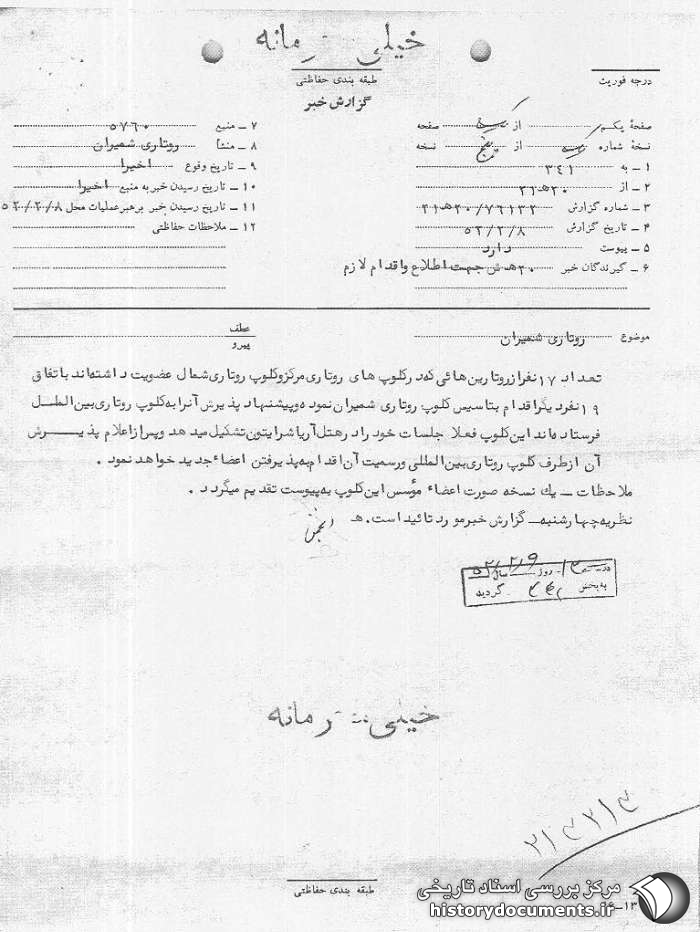 خیلی محرمانه
طبقه بندی حفاظتی
درجه فوریت
گزارش خبر
صفحهٔ یکم از یک صفحه
نسخهٔ شماره یک از پنج نسخه
۱ – به ۳۴۱
۲ – از ۲۰ه‍ ۲۱
۳ – شماره گزارش ۷۶۱۳۲/۲۰ه‍ ۲۱
۴ – تاریخ گزارش ۵۲/۲/۸
۵ – پیوست دارد
۶ – گیرندگان خبر ۲۰ه‍ ش جهت اطلاع و اقدام لازم
۷ – منبع ۵۷۶۰
۸ – منشأ روتاری شمیران
۹ – تاریخ وقوع اخیرا
۱۰ – تاریخ رسیدن خبر به منبع اخیرا
۱۱ – تاریخ رسیدن خبر برهبر عملیات محل ۵۲/۲/۸
۱۲ – ملاحظات حفاظتی
موضوع روتاری شمیران
عطف
پیرو
تعداد ۱۷ نفر از روتارین هائی که در کلوپ های روتاری مرکز و کلوپ روتاری شمال عضویت داشته‌اند باتفاق
۱۹ نفر دیگر اقدام بتاسیس کلوپ روتاری شمیران نموده و پیشنهاد پذیرش آنرا به کلوپ روتاری بین الملل
فرستاده‌اند این کلوپ فعلا جلسات خود را در هتل آریا شرایتون تشکیل میدهد و پس از اعلام پذیرش
آن از طرف کلوپ روتاری بین المللی و رسمیت آن اقدام به پذیرفتن اعضاء جدید خواهد نمود .
ملاحظات – یك نسخه صورت اعضاء مؤسس این کلوپ به پیوست تقدیم میگردد .
نظریه چهارشنبه – گزارش خبر مورد تائید است . هـ
در ساعت ۱۰ روز ۲/۹ سال ۵۲
به بخش گردید
خیلی محرمانه
۲۱۳۲۱۳
طبقه بندی حفاظتی
مرکز بررسی اسناد تاریخی
historydocuments.ir